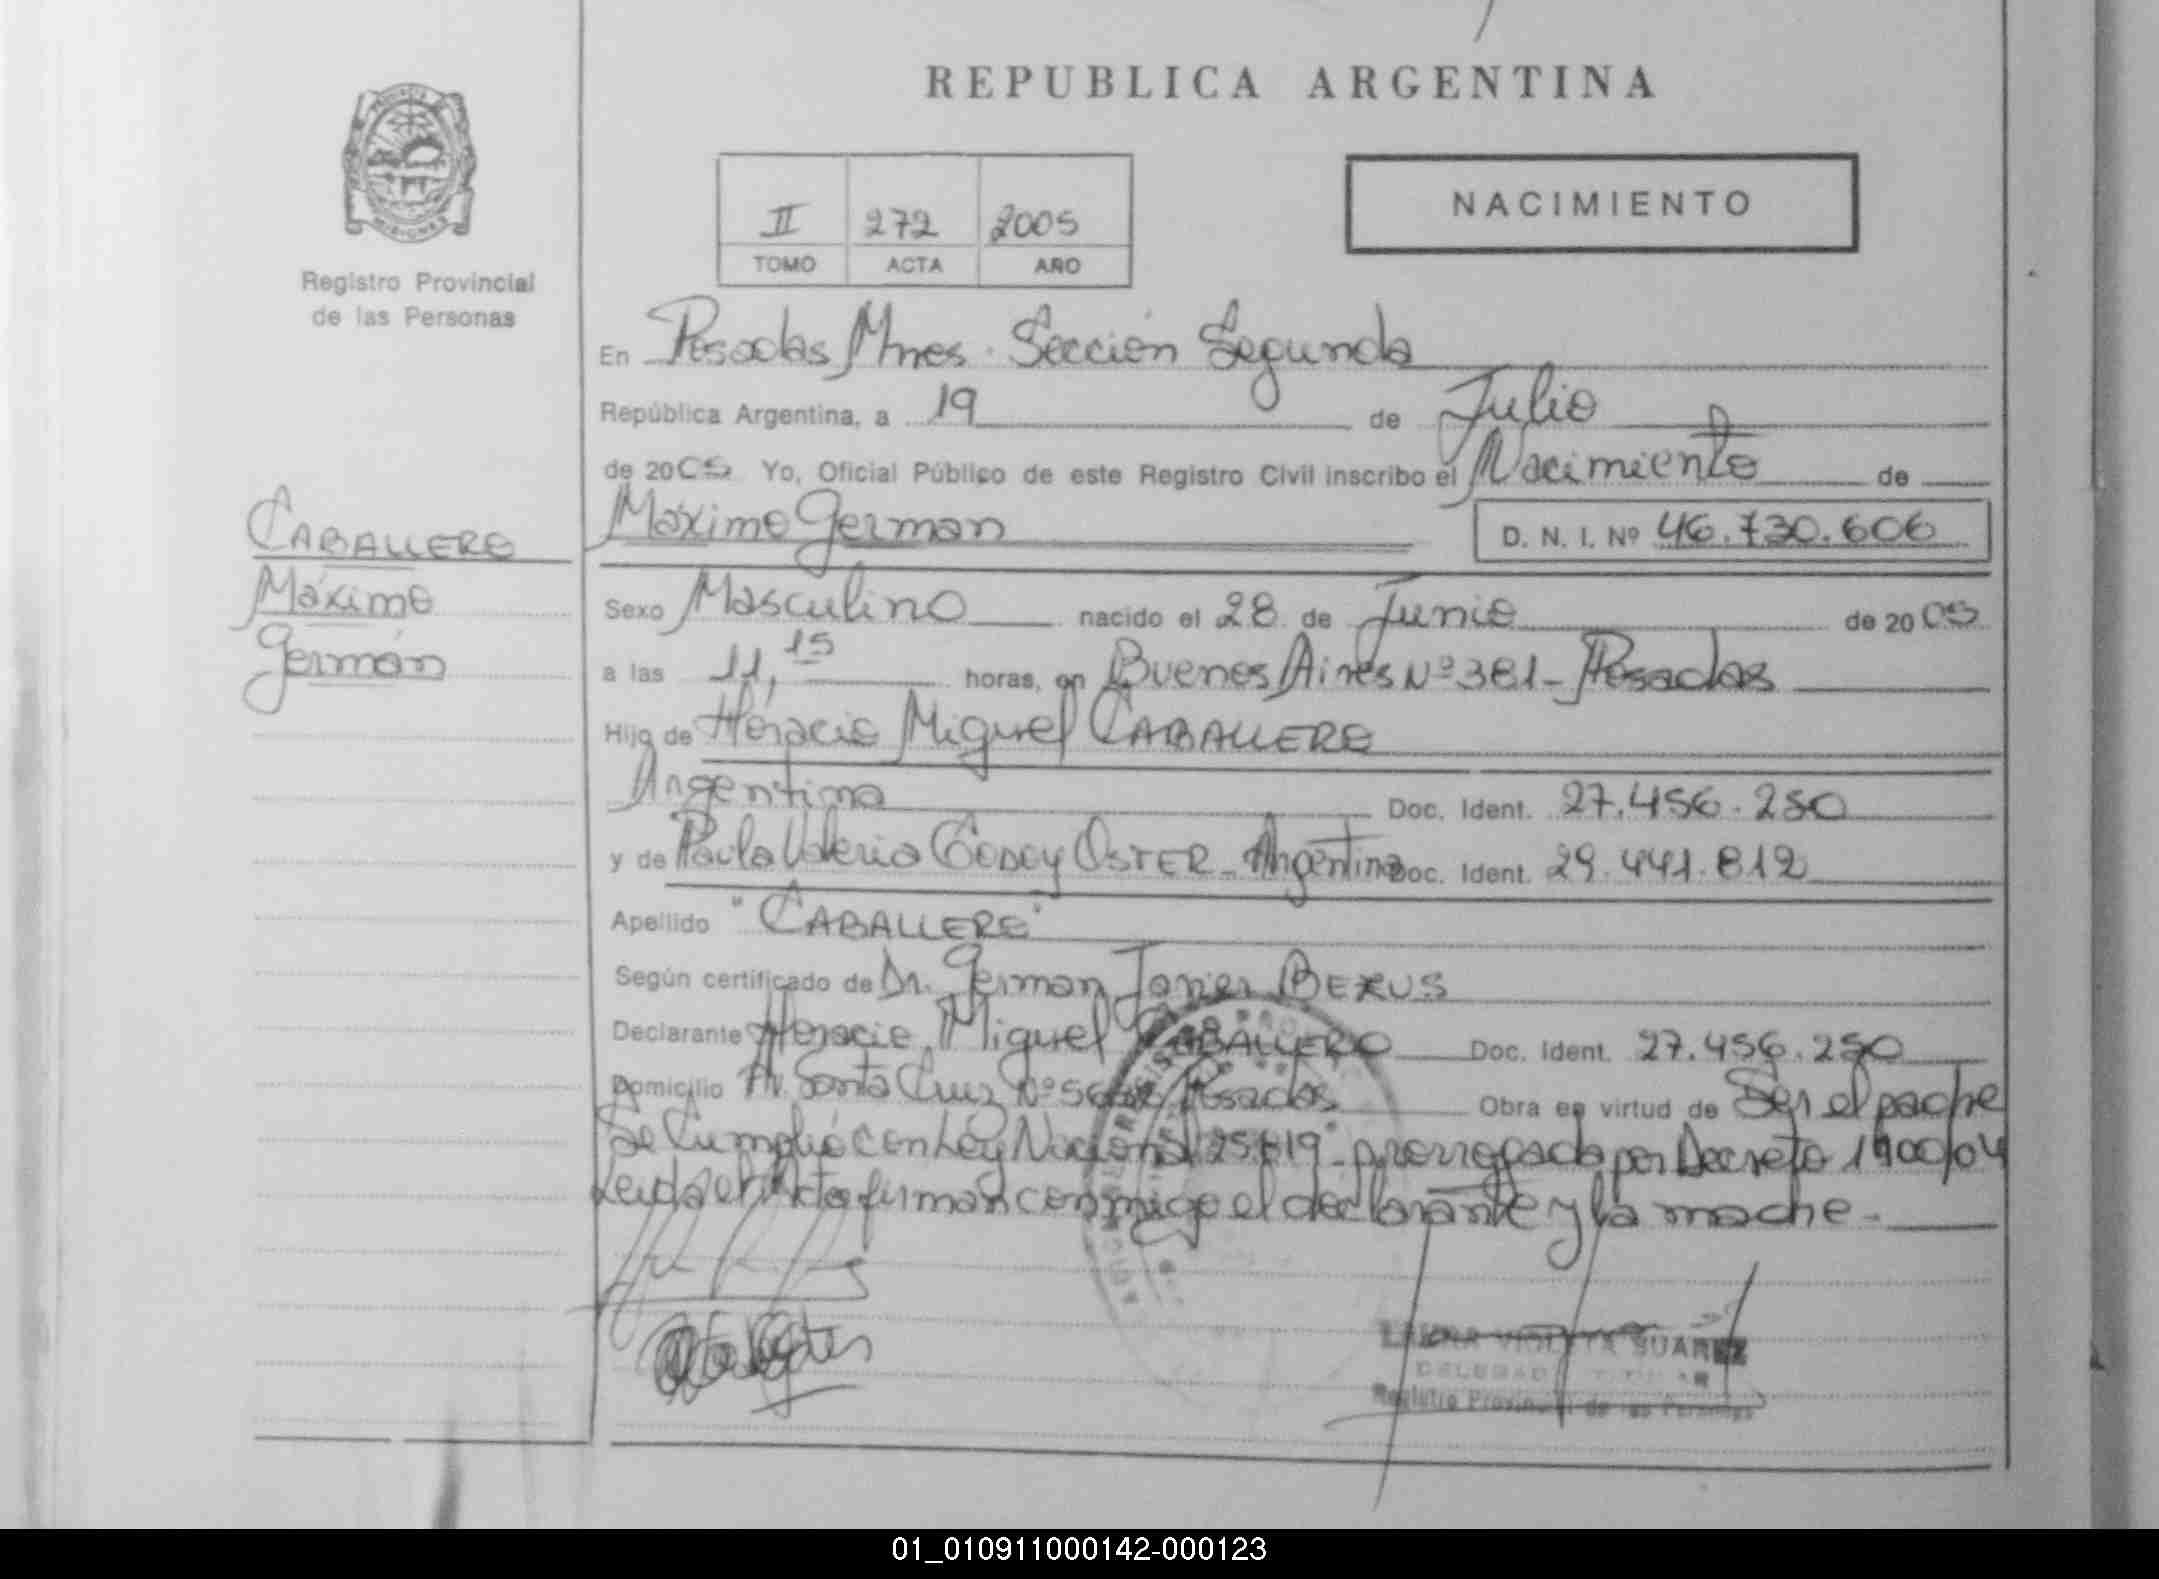 REPUBLICA ARGENTINA
II 272 2005
TOMO ACTA AÑO
NACIMIENTO
MISIONES
Registro Provincial
de las Personas
CABALLERO
Máximo
Germán
En Posadas Mnes. Sección Segunda
República Argentina, a 19 de Julio
de 2005 Yo, Oficial Público de este Registro Civil inscribo el Nacimiento de
Máximo German
D. N. I. Nº 46.730.606
Sexo Masculino nacido el 28 de Junio de 2005
a las 11,15 horas, en Buenos Aires Nº 381 - Posadas
Hijo de Horacio Miguel CABALLERO
Argentina Doc. Ident. 27.456.250
y de Paula Valeria GODOY OSTER - Argentina Doc. Ident. 29.441.812
Apellido "CABALLERO"
Según certificado de Dr. German Javier BEXUS
Declarante Horacio Miguel CABALLERO Doc. Ident. 27.456.250
Domicilio Av. Santa Cruz Nº Posadas Obra en virtud de Ser el padre
Se Cumplió con Ley Nacional 25.819 - prorrogada por Decreto 1900/04
Leida el Acta firman conmigo el declarante y la madre.
LAURA VIOLETA SUAREZ
DELEGADA TITULAR
Registro Provincial de las Personas
01_010911000142-000123